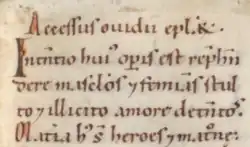 Accessus ouidii eplaꝝ.
Intentio huiꝰ opis est rephen
dere masclos ⁊ feminas stul
to ⁊ illicito amore detentos
Matia hꝰ ẜ heroes ⁊ matrone.